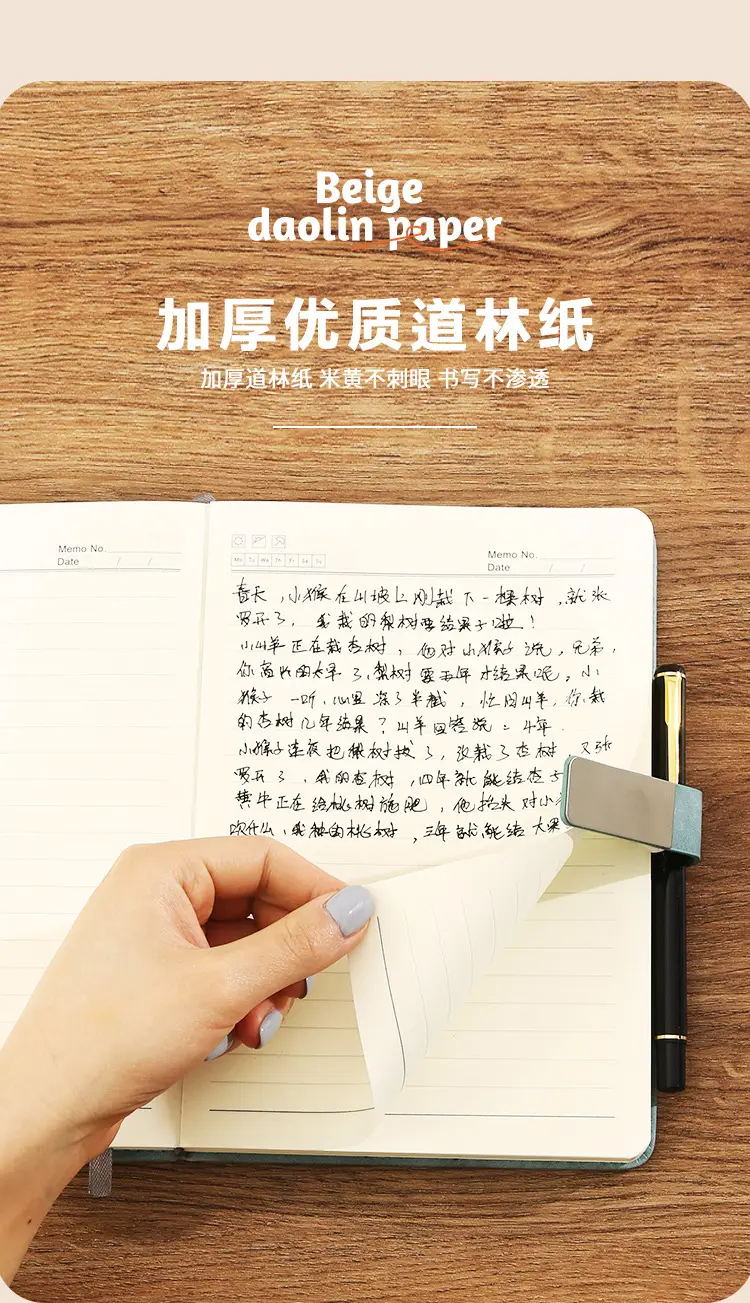 Beige
daolin paper
加厚优质道林纸
加厚道林纸 米黄不刺眼 书写不渗透
Memo No.
Date / /
Memo No.
Date / /
Mo Tu We Th Fr Sa Su
春天,小猴在山坡上刚栽下一棵树,就张
罗开了,我栽的梨树要结果子啦!
小山羊正在栽杏树,他对小猴子说,兄弟,
你高兴的太早了,梨树要五年才结果呢。小
猴子一听,心里凉了半截,忙问山羊,你栽
的杏树几年结果?山羊回答说:4年.
小猴子连夜把梨树拔了,没栽了杏树,又张
罗开了,我的杏树,四年就能结杏子
黄牛正在给桃树施肥,他抬头对小
吹什么,我种的桃树,三年就能结大果